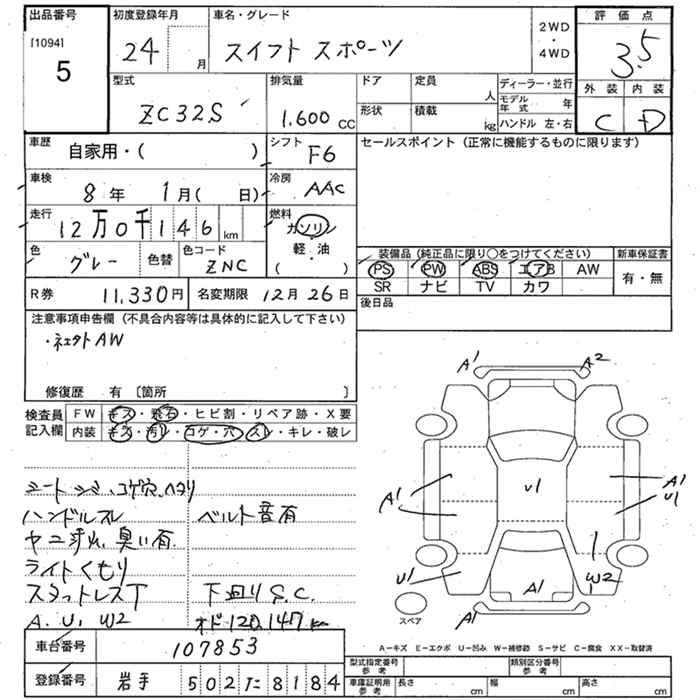 出品番号 初度登録年月 車名・グレード 2WD・4WD 評価点
[1094] 5
24 月 スイフト スポーツ 3.5
型式 排気量 ドア 定員 人 ディーラー・並行 外装 内装
ZC32S 1.600 CC 形状 積載 kg モデル年式 年 C D
ハンドル 左・右
車歴 自家用・( ) シフト F6 セールスポイント (正常に機能するものに限ります)
車検 8年 1月( 日) 冷房 AAC
走行 12万0千146km 燃料 ガソリン・軽・油 ( )
色 グレー 色替 色コード ZNC 装備品 (純正品に限り○をつけてください) 新車保証書
PS PW ABS エアB AW 有・無
SR ナビ TV カワ
R券 11,330円 名変期限 12月26日 後日品
注意事項申告欄 (不具合内容等は具体的に記入して下さい)
・社外AW
修復歴 有 〔箇所 〕
検査員記入欄 FW キズ・飛石・ヒビ割・リペア跡・X要
内装 キズ・汚レ・コゲ・穴・スレ・キレ・破レ
A1 A2
シートシミ、コゲ穴、ヘタリ
ハンドルスレ ベルト音有
ヤニ汚れ、臭い有
ライトくもり
スタットレスT 下回りS.C.
A. U. W2 オド120,147km
A1 U1 A1 U1
U1 A1 W2
A1
スペア
A-キズ E-エクボ U-凹み W-補修跡 S-サビ C-腐食 XX-取替済
車台番号 107853
登録番号 岩手 502 た 8184
型式指定番号 参考 類別区分番号 参考
車庫証明用 参考 長さ cm 幅 cm 高さ cm